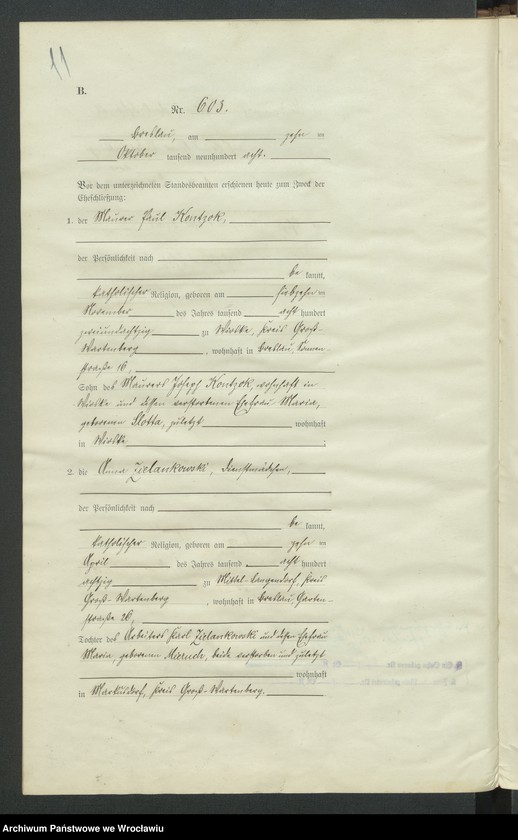 11
B.
Nr. 603.
Breslau, am zehn ten
Oktober tausend neunhundert acht.
Vor dem unterzeichneten Standesbeamten erschienen heute zum Zweck der
Eheschließung:
1. der Maurer Paul Kontzok,
der Persönlichkeit nach
be kannt,
katholischer Religion, geboren am siebzehn ten
November des Jahres tausend acht hundert
zweiundachtzig zu Wioske, Kreis Groß-
Wartenberg, wohnhaft in Breslau,
straße 16,
Sohn des Maurers Joseph Kontzok, wohnhaft in
Wioske und dessen verstorbenen Ehefrau Maria,
geborenen Slotta, zuletzt wohnhaft
in Wioske ;
2. die Anna Zielankowski, Dienstmädchen,
der Persönlichkeit nach
be kannt,
katholischer Religion, geboren am zehn ten
April des Jahres tausend acht hundert
achtzig zu Mittel-Langendorf, Kreis
Groß-Wartenberg, wohnhaft in Breslau, Garten-
straße 26,
Tochter des Arbeiters Karl Zielankowski und dessen Ehefrau
Maria, geborenen, beide verstorben und zuletzt
wohnhaft
in Markusdorf, Kreis Groß-Wartenberg.
Archiwum Państwowe we Wrocławiu